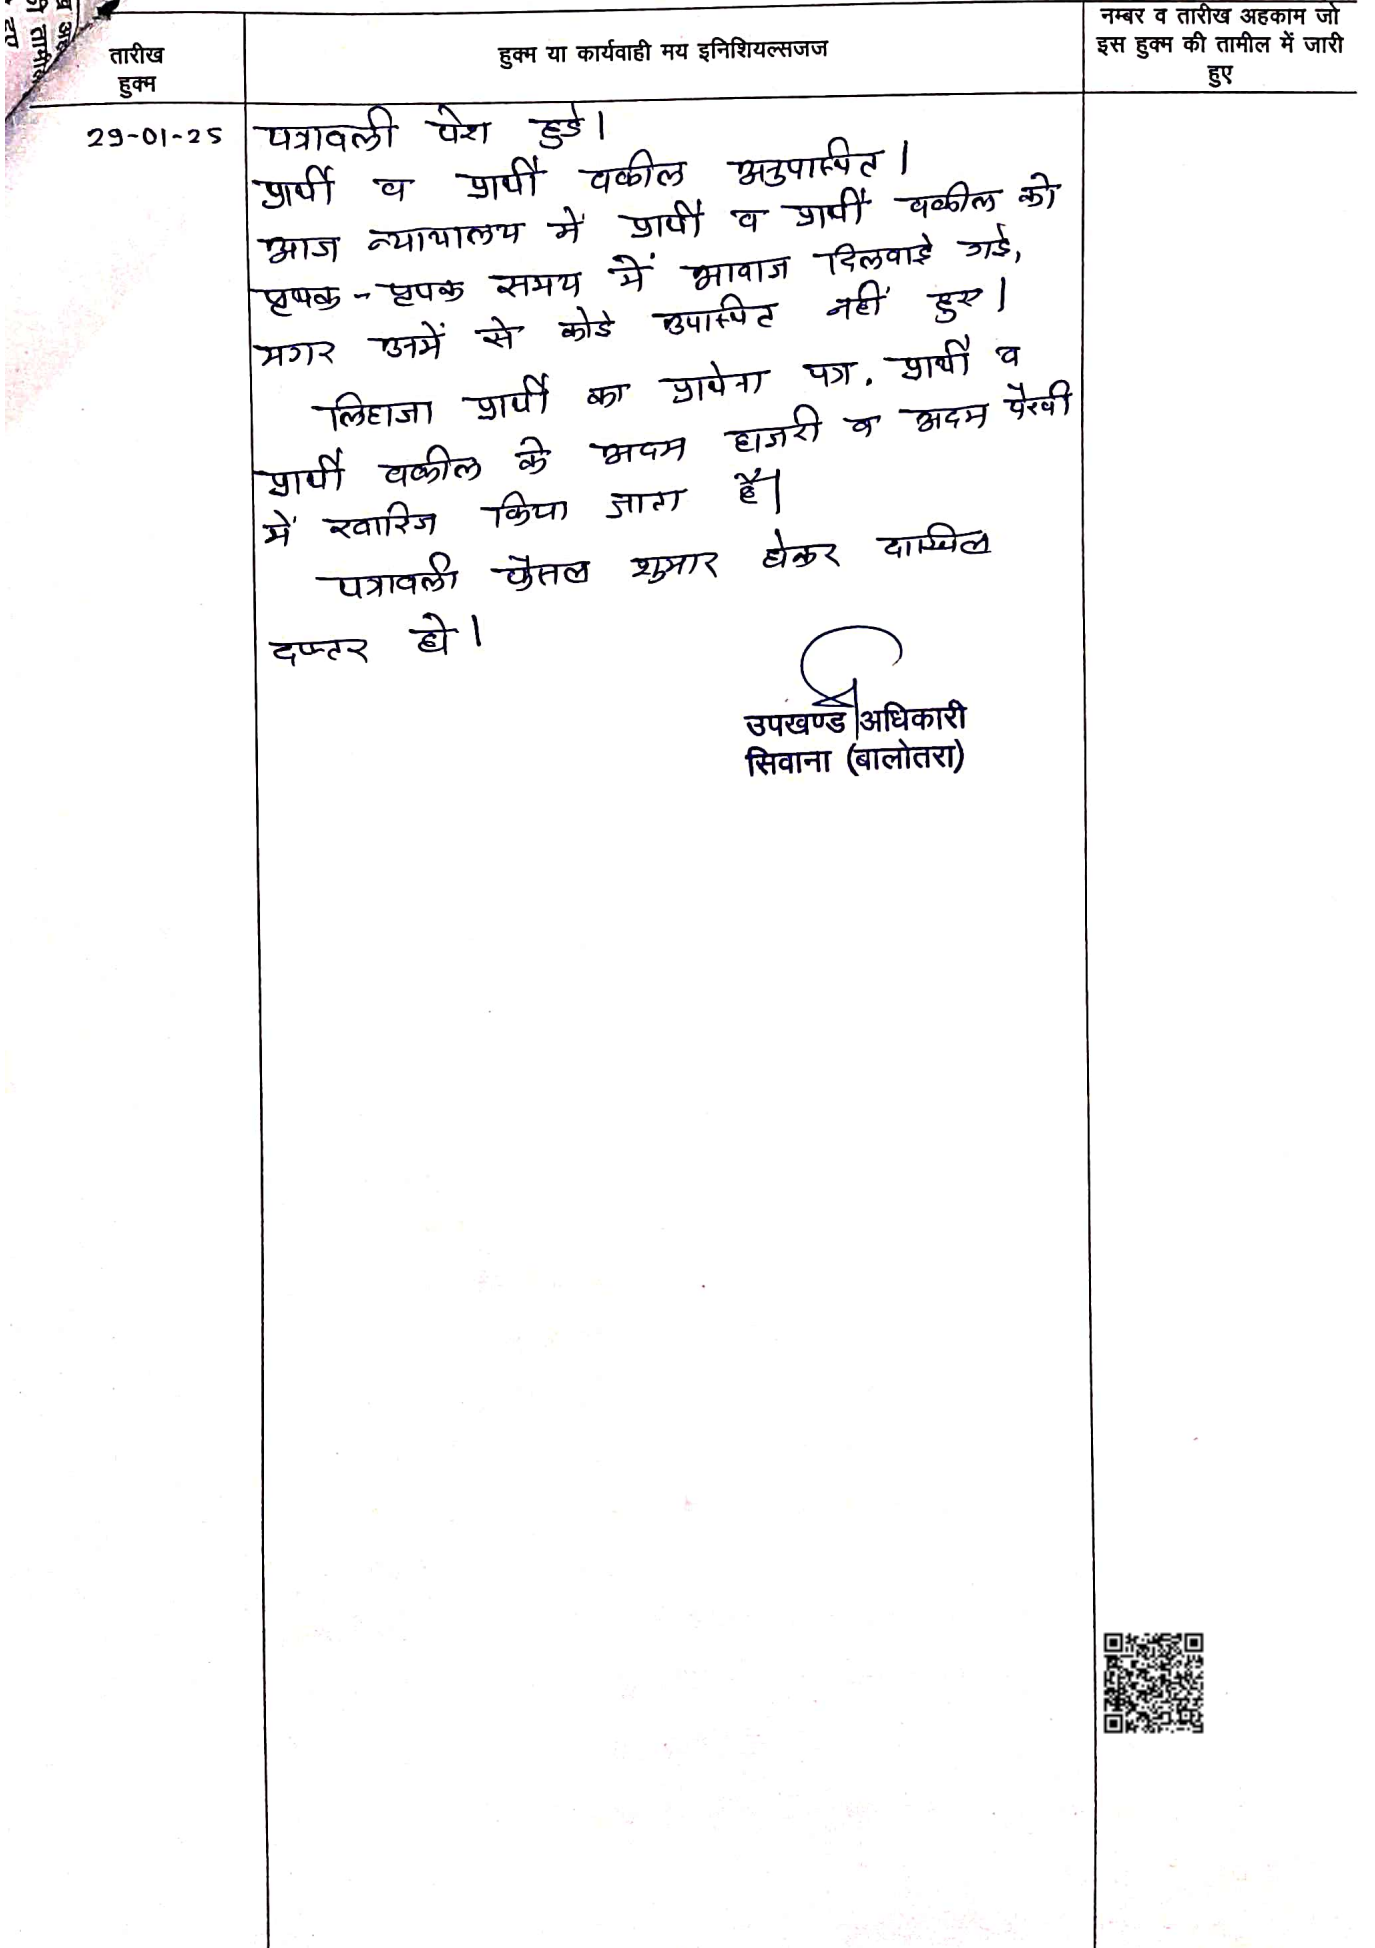 नम्बर व तारीख अहकाम जो
इस हुक्म की तामील में जारी
हुए
तारीख
हुक्म
हुक्म या कार्यवाही मय इनिशियल्सजज
29-01-25
पत्रावली पेश हुई।
प्रार्थी व प्रार्थी वकील अनुपास्थित।
आज न्यायालय में प्रार्थी व प्रार्थी वकील को
पृथक-पृथक समय में आवाज दिलवाई गई,
मगर उनमें से कोई उपास्थित नहीं हुए।
लिहाजा प्रार्थी का प्रार्थना पत्र, प्रार्थी व
प्रार्थी वकील के अदम हाजरी व अदम पैरवी
में खारिज किया जाता है।
पत्रावली फैसल शुमार होकर दाखिल
दफ्तर हो।
उपखण्ड अधिकारी
सिवाना (बालोतरा)